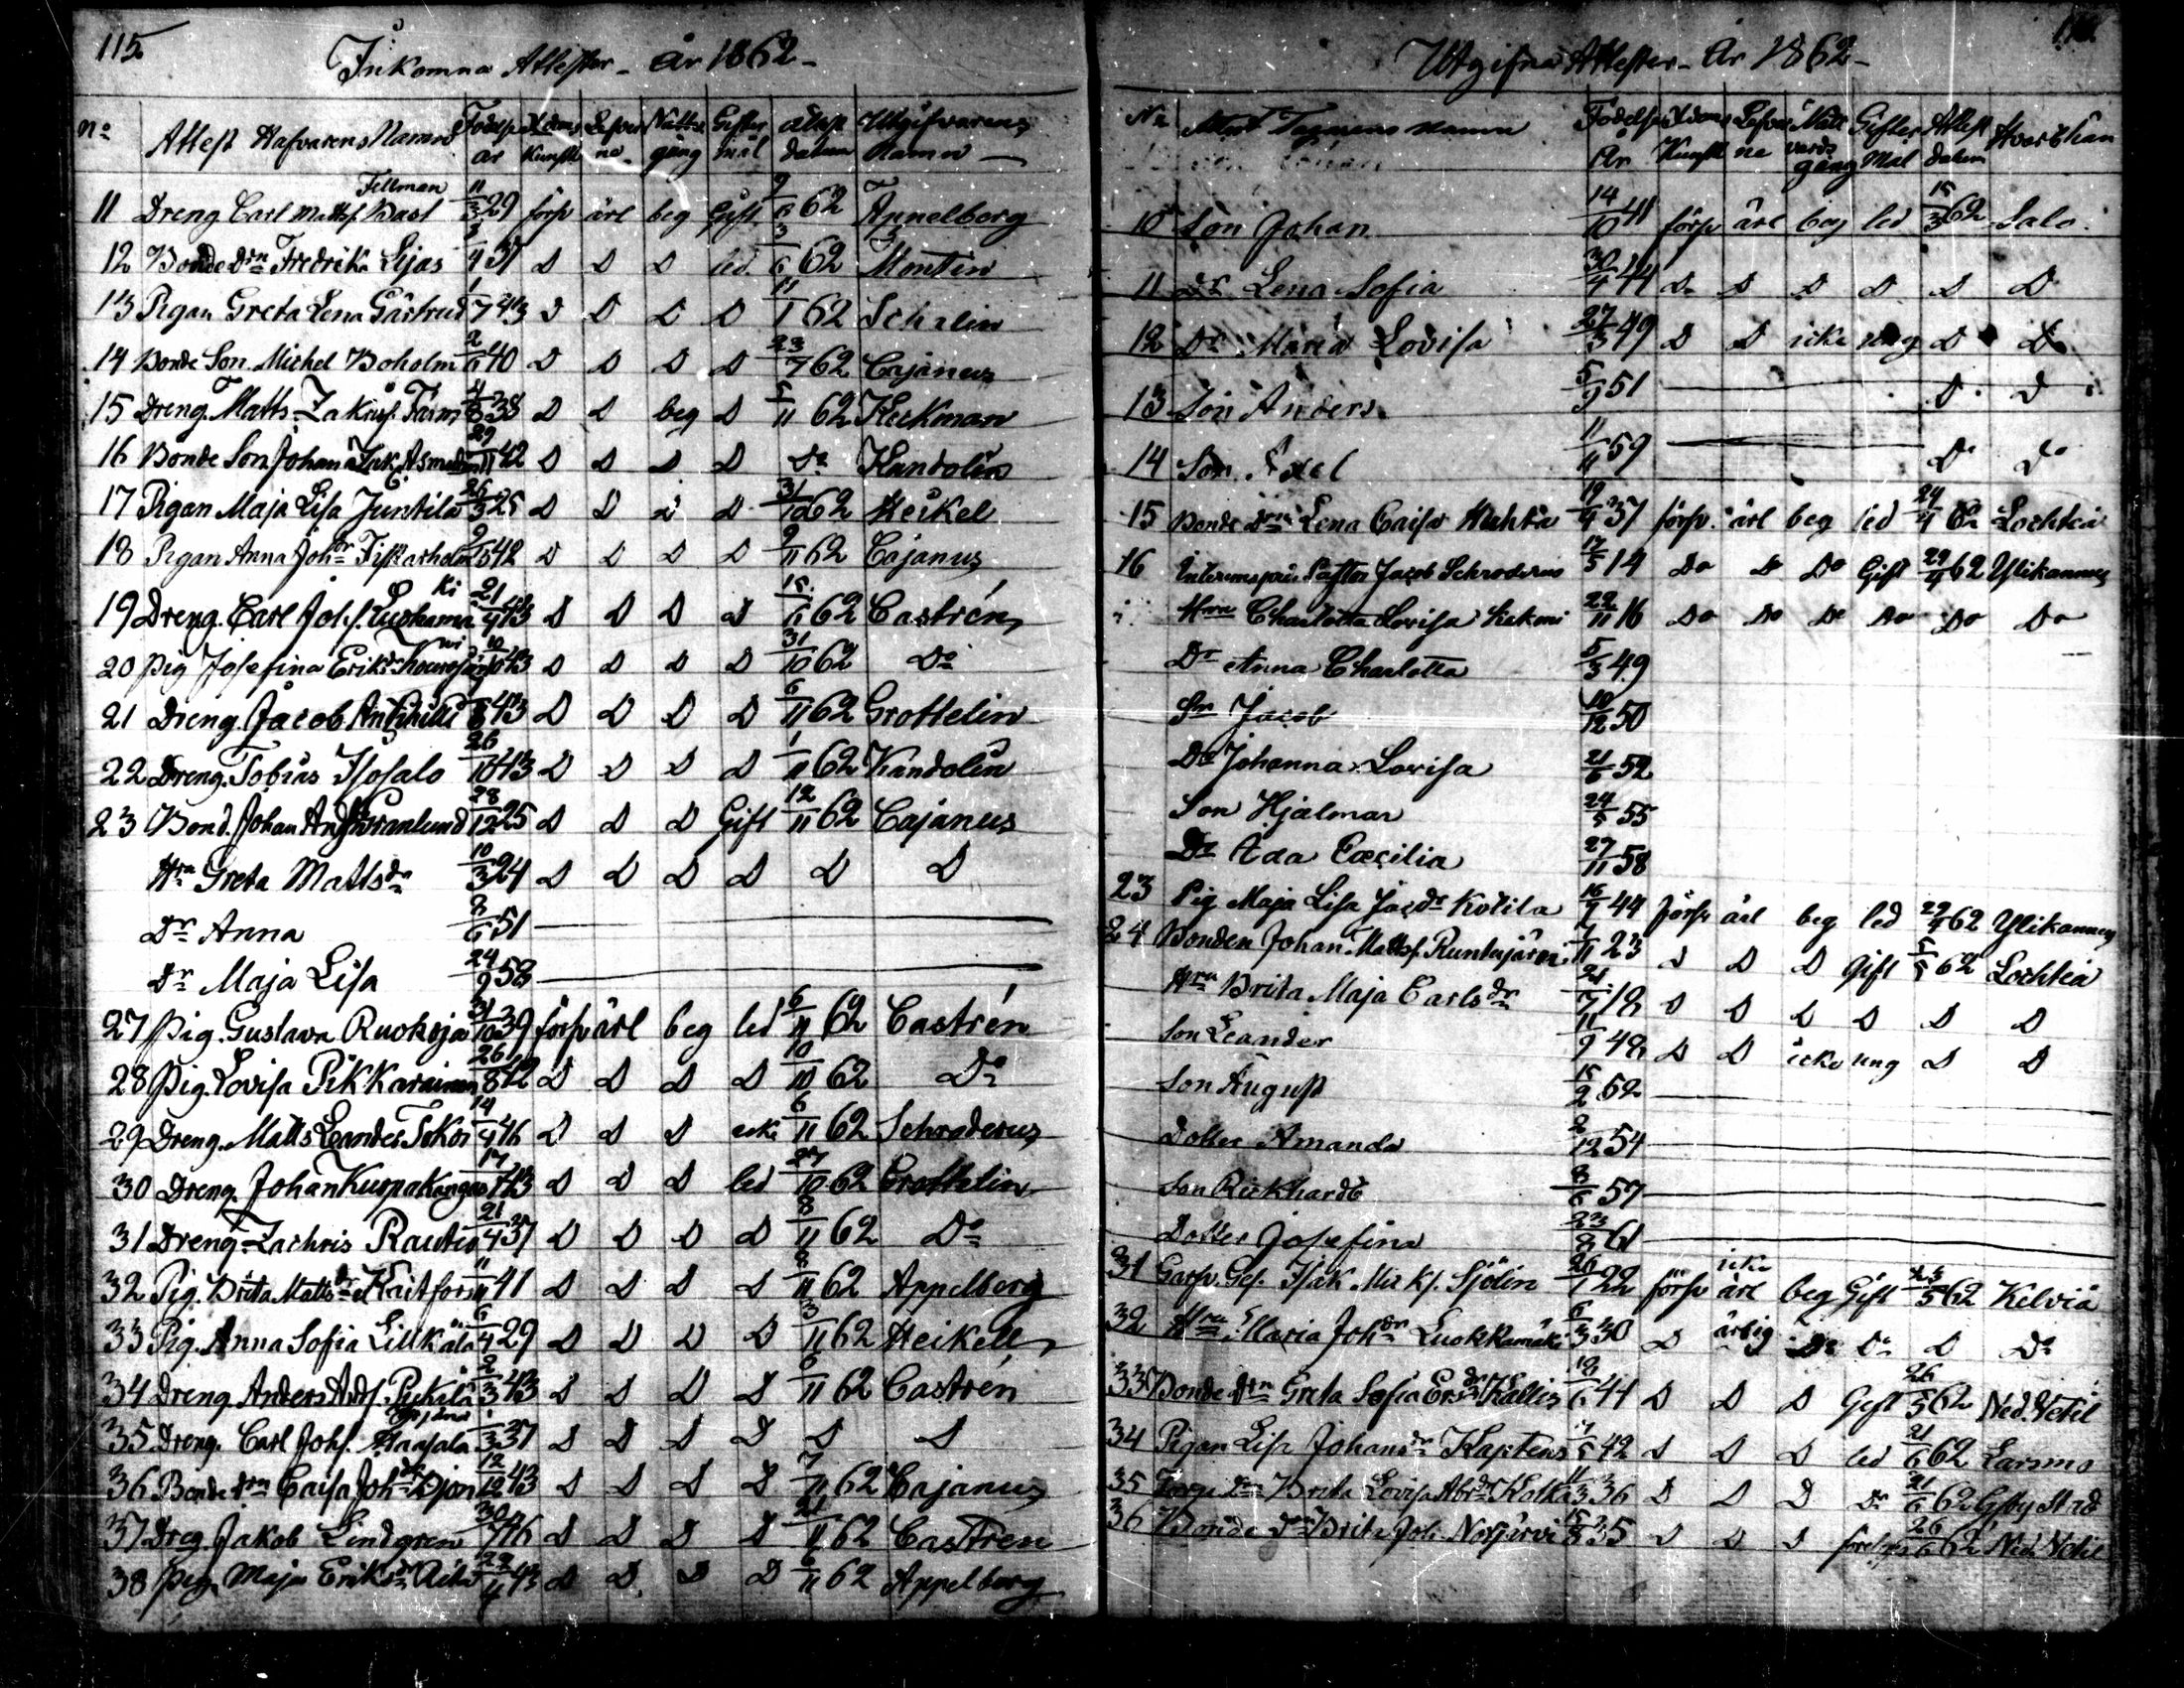 115
Inkomna Attester - år 1862 -
No Attest Hafvarens Namn Födelse år Kunsk Lefver ne Natt gång Gifter mål Attest datum Utgifvarens Namn
Fellman
11 Dreng Carl Mattss. Bast 11/3 29 försv ärl beg Gift 9/6 62 Appelborg
12 Bonde Drn Fredrika Sijas 3/4 37 D D D led 3/6 62 Montin
13 Pigan Greta Lena Gästrud 1/7 43 D D D D 11/1 62 Schalin
14 Bonde Son Michel Boholm 2/6 40 D D D D 23/7 62 Cajanus
15 Dreng Matts Zakriss. Farm 4/8 38 D D beg D 5/11 62 Heikman
16 Bonde Son Johan Isak 29/11 42 D D D D Do Kandolin
17 Pigan Maja Lisa Juntila 26/3 25 D D D D 31/10 62 Heikel
18 Pigan Anna Johdr Fiskarholm 9/5 42 D D D D 9/11 62 Cajanus
19 Dreng Carl Johs. 21/9 43 D D D D 15/6 62 Castrén
20 Pig Josefina Eriksdr 10/10 43 D D D D 31/10 62 Do
21 Dreng Jacob Anttihilli 43 D D D D 6/11 62 Grottelin
22 Dreng Tobias Isosalo 26/10 43 D D D D 1/11 62 Kandolin
23 Bond. Johan Ands. Granlund 28/12 25 D D D Gift 12/11 62 Cajanus
Hru Greta Mattsdr 10/3 24 D D D D D D
Dr Anna 8/6 51
Dr Maja Lisa 24/9 58
27 Pig. Gustava Ruohoja 31/10 39 försv ärl beg led 6/11 62 Castrén
28 Pig. Lovisa Pikkarainen 26/8 42 D D D D 10/10 62 Do
29 Dreng. Matts Leander Isko 14/4 46 D D D 6/11 62 Schroderus
30 Dreng Johan Kuopakangas 17/7 43 D D D led 27/10 62 Grottelin
31 Dreng Zachris Rautio 21/4 37 D D D D 8/11 62 Do
32 Pig. Brita Mattsdr Kaitfors 11/11 41 D D D D 8/11 62 Appelberg
33 Pig. Anna Sofia Lillkäla 6/4 29 D D D D 3/11 62 Heikell
34 Dreng Anders Ands. Peltola 2/3 43 D D D D 6/11 62 Castrén
35 Dreng. Carl Johs. Haasala 1/3 37 D D D D D D
36 Bonde Drn Caisa Johdr Djon 12/12 43 D D D D 7/11 62 Cajanus
37 Dreg Jakob Lindgren 30/7 46 D D D D 21/11 62 Castren
38 Pign Maja Eriksdr 22/4 43 D D D D 6/11 62 Appelborg
Utgifna Attester - År 1862 -
No Attest Tagarens namn Födelse År Kunsk Lefver ne Natt vards gång Gifter Mål Attest datum Hvarthän
10 Son Johan 14/10 41 försv ärl beg led 15/3 62 Salo
11 dr Lena Sofia 30/4 44 Do D D D D D
12 Dr Maria Lovisa 27/3 49 D D icke ung D Do
13 Son Anders 5/9 51 D D
14 Son Axel 11/11 59 Do Do
15 Bonde Drn Lena Caisa Huhta 19/4 37 försv ärl beg led 24/4 62 Lochteå
16 Pastor Jacob Schroderus 17/5 14 Do Do Do Gift 29/4 62 Ylikannus
Hru Charlotta Lovisa 22/11 16 Do Do Do Do Do Do
Dr Anna Charlotta 5/3 49
Sn Jacob 10/12 50
Dr Johanna Lovisa 21/6 52
Son Hjalmar 24/5 55
Dr Ada Cæcilia 27/11 58
23 Pig Maja Lisa Jacdr Kotila 16/7 44 försv ärl beg led 29/4 62 Ylikannus
24 Bonden Johan Mattss. Runtujärvi 7/11 23 D D D Gift 5/5 62 Lochteå
Hru Brita Maja Carlsdr 21/7 18 D D D D D D
Son Leander 11/9 48 D D icke ung D D
Son August 15/2 52
Dotter Amanda 2/12 54
Son Rickhardt 8/6 57
Dotter Josefina 23/8 61
31 Garfv. Ges. Isak Mickss. Sjölin 26/1 22 försv icke ärl beg Gift 23/5 62 Kelviå
32 Hru Maria Johdr Luokkamäki 6/3 30 D ärlig Do Do D Do
33 Bonde Drn Greta Sofia Ersdr Källis 18/6 44 D D D Gift 26/5 62 Ned. Vetil
34 Pigan Lisa Johansdr Kaptens 7/5 42 D D D led 21/6 62 Larsmo
35 Brita Lovisa Abrdr Kotka 11/3 36 D D D Do 21/6 62 Gby Stad
36 Bonde Drn Brita Joh. Norjärvi 15/8 35 D D D 26/6 62 Ned Vetil